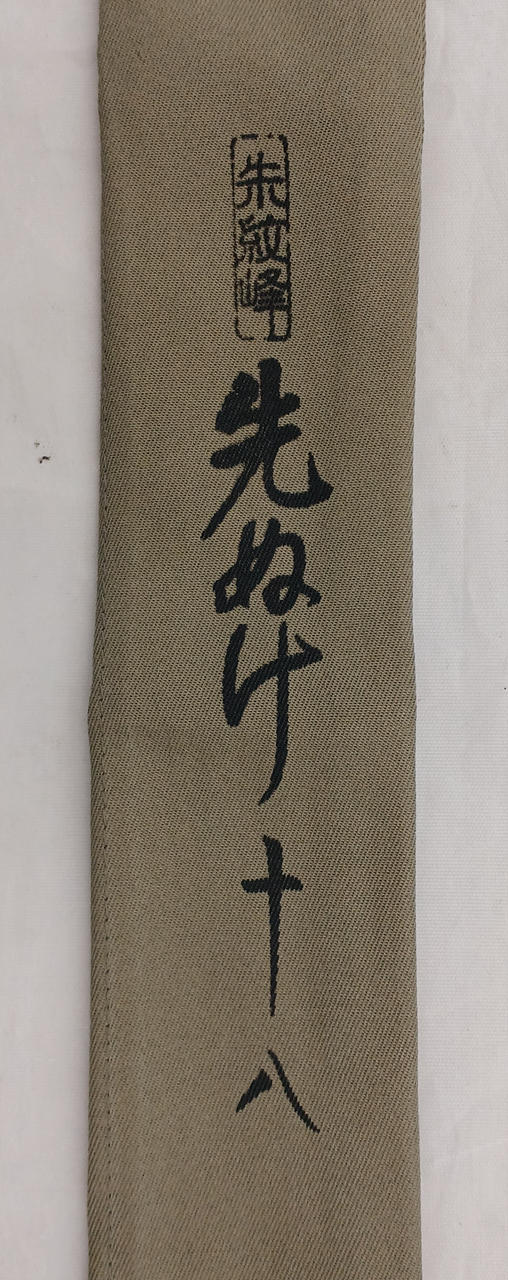 朱紋峰
先ぬけ十八